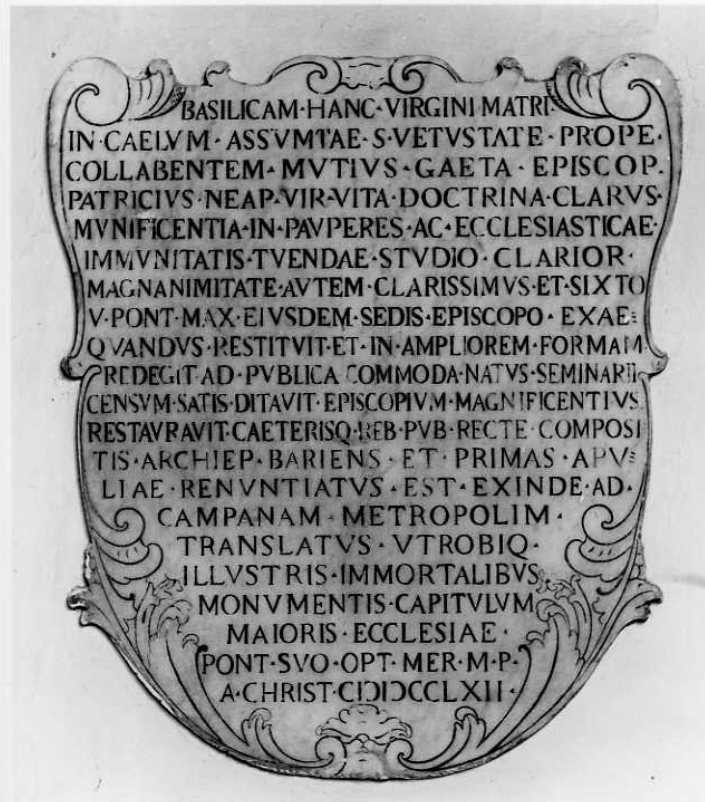 BASILICAM·HANC·VIRGINI MATRI·
IN·CAELVM·ASSVMTAE·S·VETVSTATE·PROPE·
COLLABENTEM·MVTIVS·GAETA·EPISCOP.
PATRICIVS·NEAP·VIR·VITA·DOCTRINA·CLARVS·
MVNIFICENTIA·IN·PAVPERES·AC·ECCLESIASTICAE·
IMMVNITATIS·TVENDAE·STVDIO·CLARIOR·
MAGNANIMITATE·AVTEM·CLARISSIMVS·ET·SIXTO
V·PONT·MAX·EIVSDEM·SEDIS·EPISCOPO·EXAE=
QVANDVS·RESTITVIT·ET·IN·AMPLIOREM·FORMAM
REDEGIT·AD·PVBLICA COMMODA·NATVS·SEMINARII
CENSVM·SATIS·DITAVIT·EPISCOPIVM·MAGNIFICENTIVS
RESTAVRAVIT·CAETERISQ·REB·PVB·RECTE·COMPOSI
TIS·ARCHIEP·BARIENS·ET·PRIMAS·APV=
LIAE·RENVNTIATVS·EST·EXINDE·AD·
CAMPANAM·METROPOLIM·
TRANSLATVS·VTROBIQ·
ILLVSTRIS·IMMORTALIBVS
MONVMENTIS·CAPITVLVM
MAIORIS·ECCLESIAE·
PONT·SVO·OPT·MER·M·P·
A·CHRIST·CIƆIƆCCLXII·